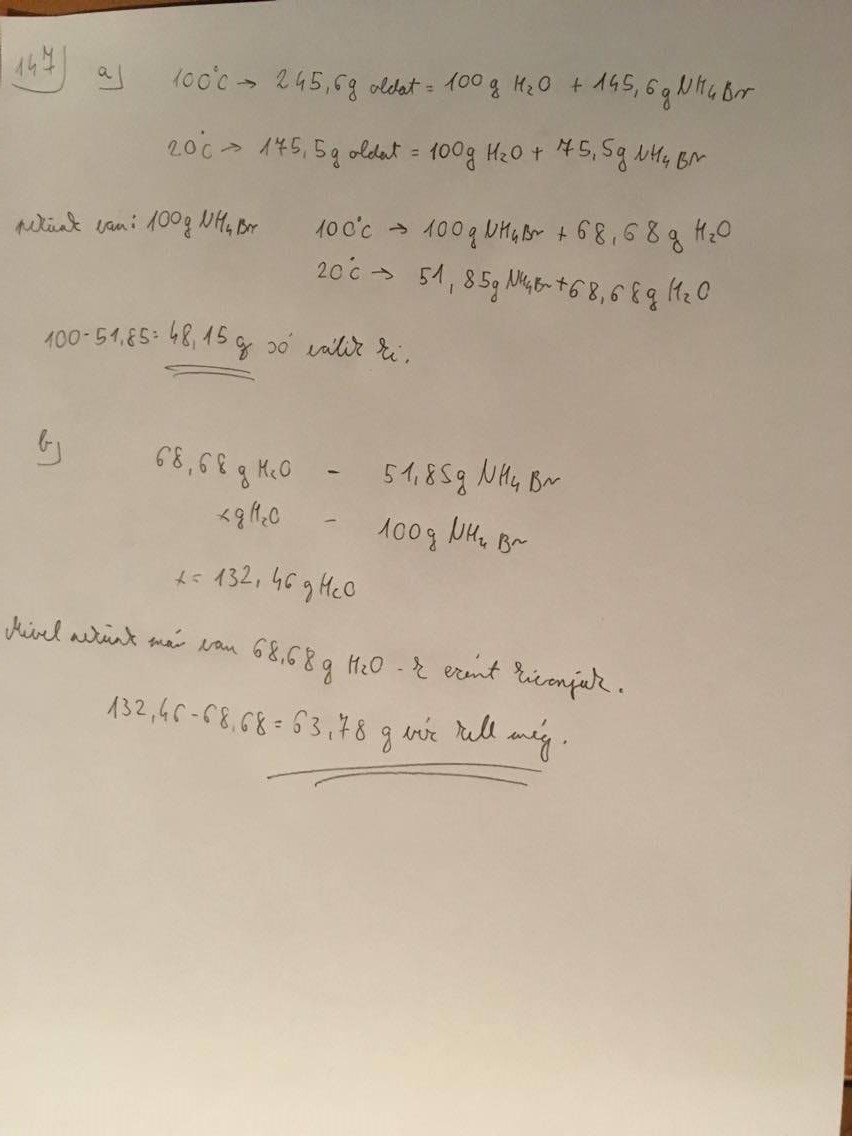 147) a) 100°C → 245,6g oldat = 100g H2O + 145,6g NH4Br
20°C → 175,5g oldat = 100g H2O + 75,5g NH4Br
nekünk van: 100g NH4Br 100°C → 100g NH4Br + 68,68g H2O
20°C → 51,85g NH4Br + 68,68g H2O
100-51,85= 48,15g só válik ki.
b) 68,68g H2O - 51,85g NH4Br
xgH2O - 100g NH4Br
x= 132,46g H2O
Mivel nekünk már van 68,68g H2O-k ezért kivonjuk.
132,46-68,68= 63,78 g víz kell még.